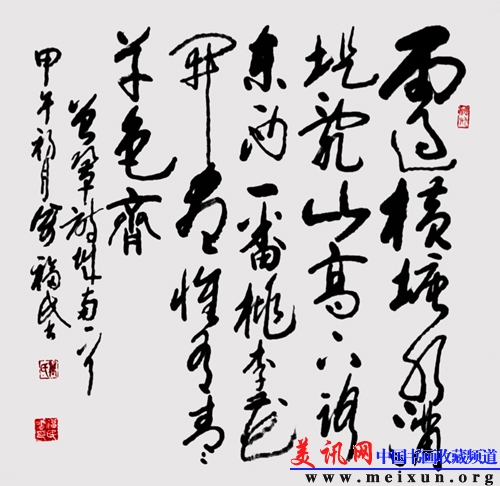 雨过横塘水满
堤乱山高下路
东西一番桃李花
开尽惟有青青
草色齐
曾巩诗城南一首
甲午初月福民书
美讯网 中国书画收藏频道
www.meixun.org